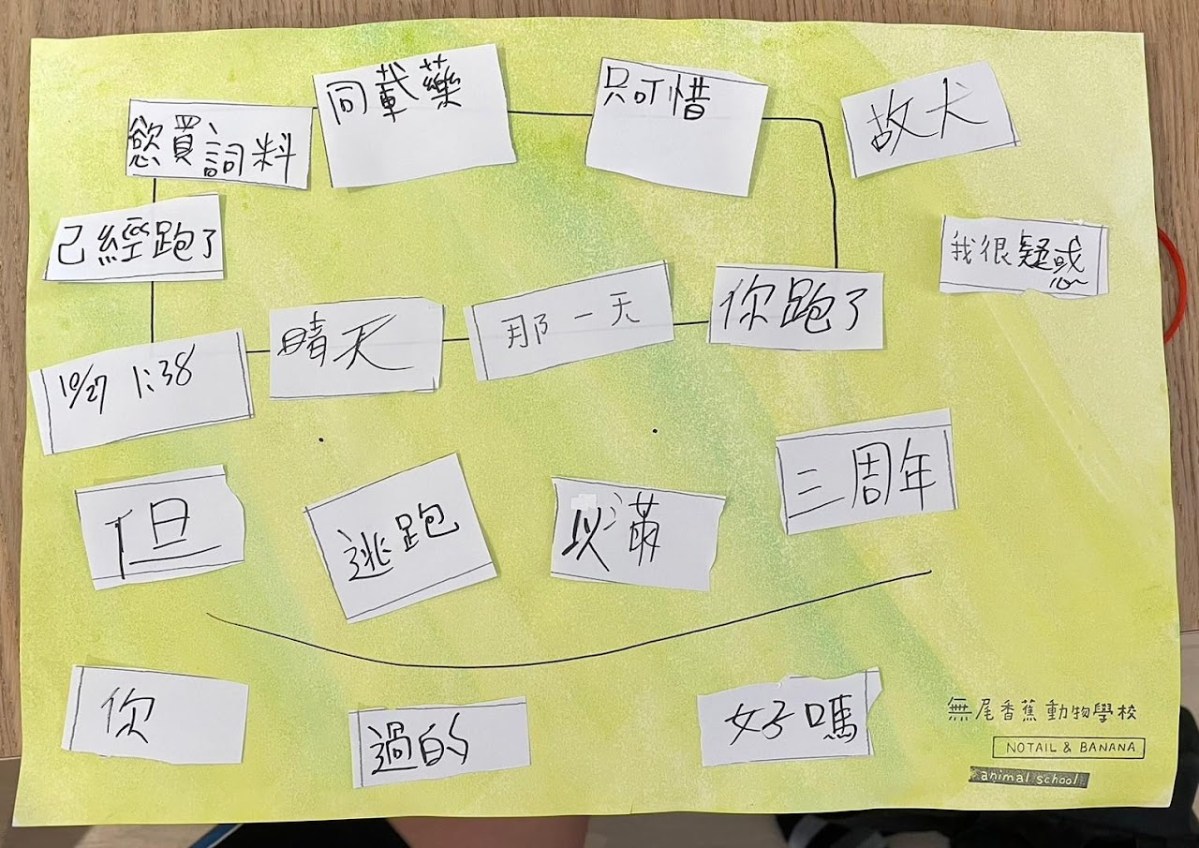 慾買詞料
同載藥
只可惜
故犬
已經跑了
我很疑惑
10/27 1:38
晴天
那一天
你跑了
但
逃跑
以滿
三周年
你
過的
好嗎
無尾香蕉動物學校
NOTAIL & BANANA
animal school